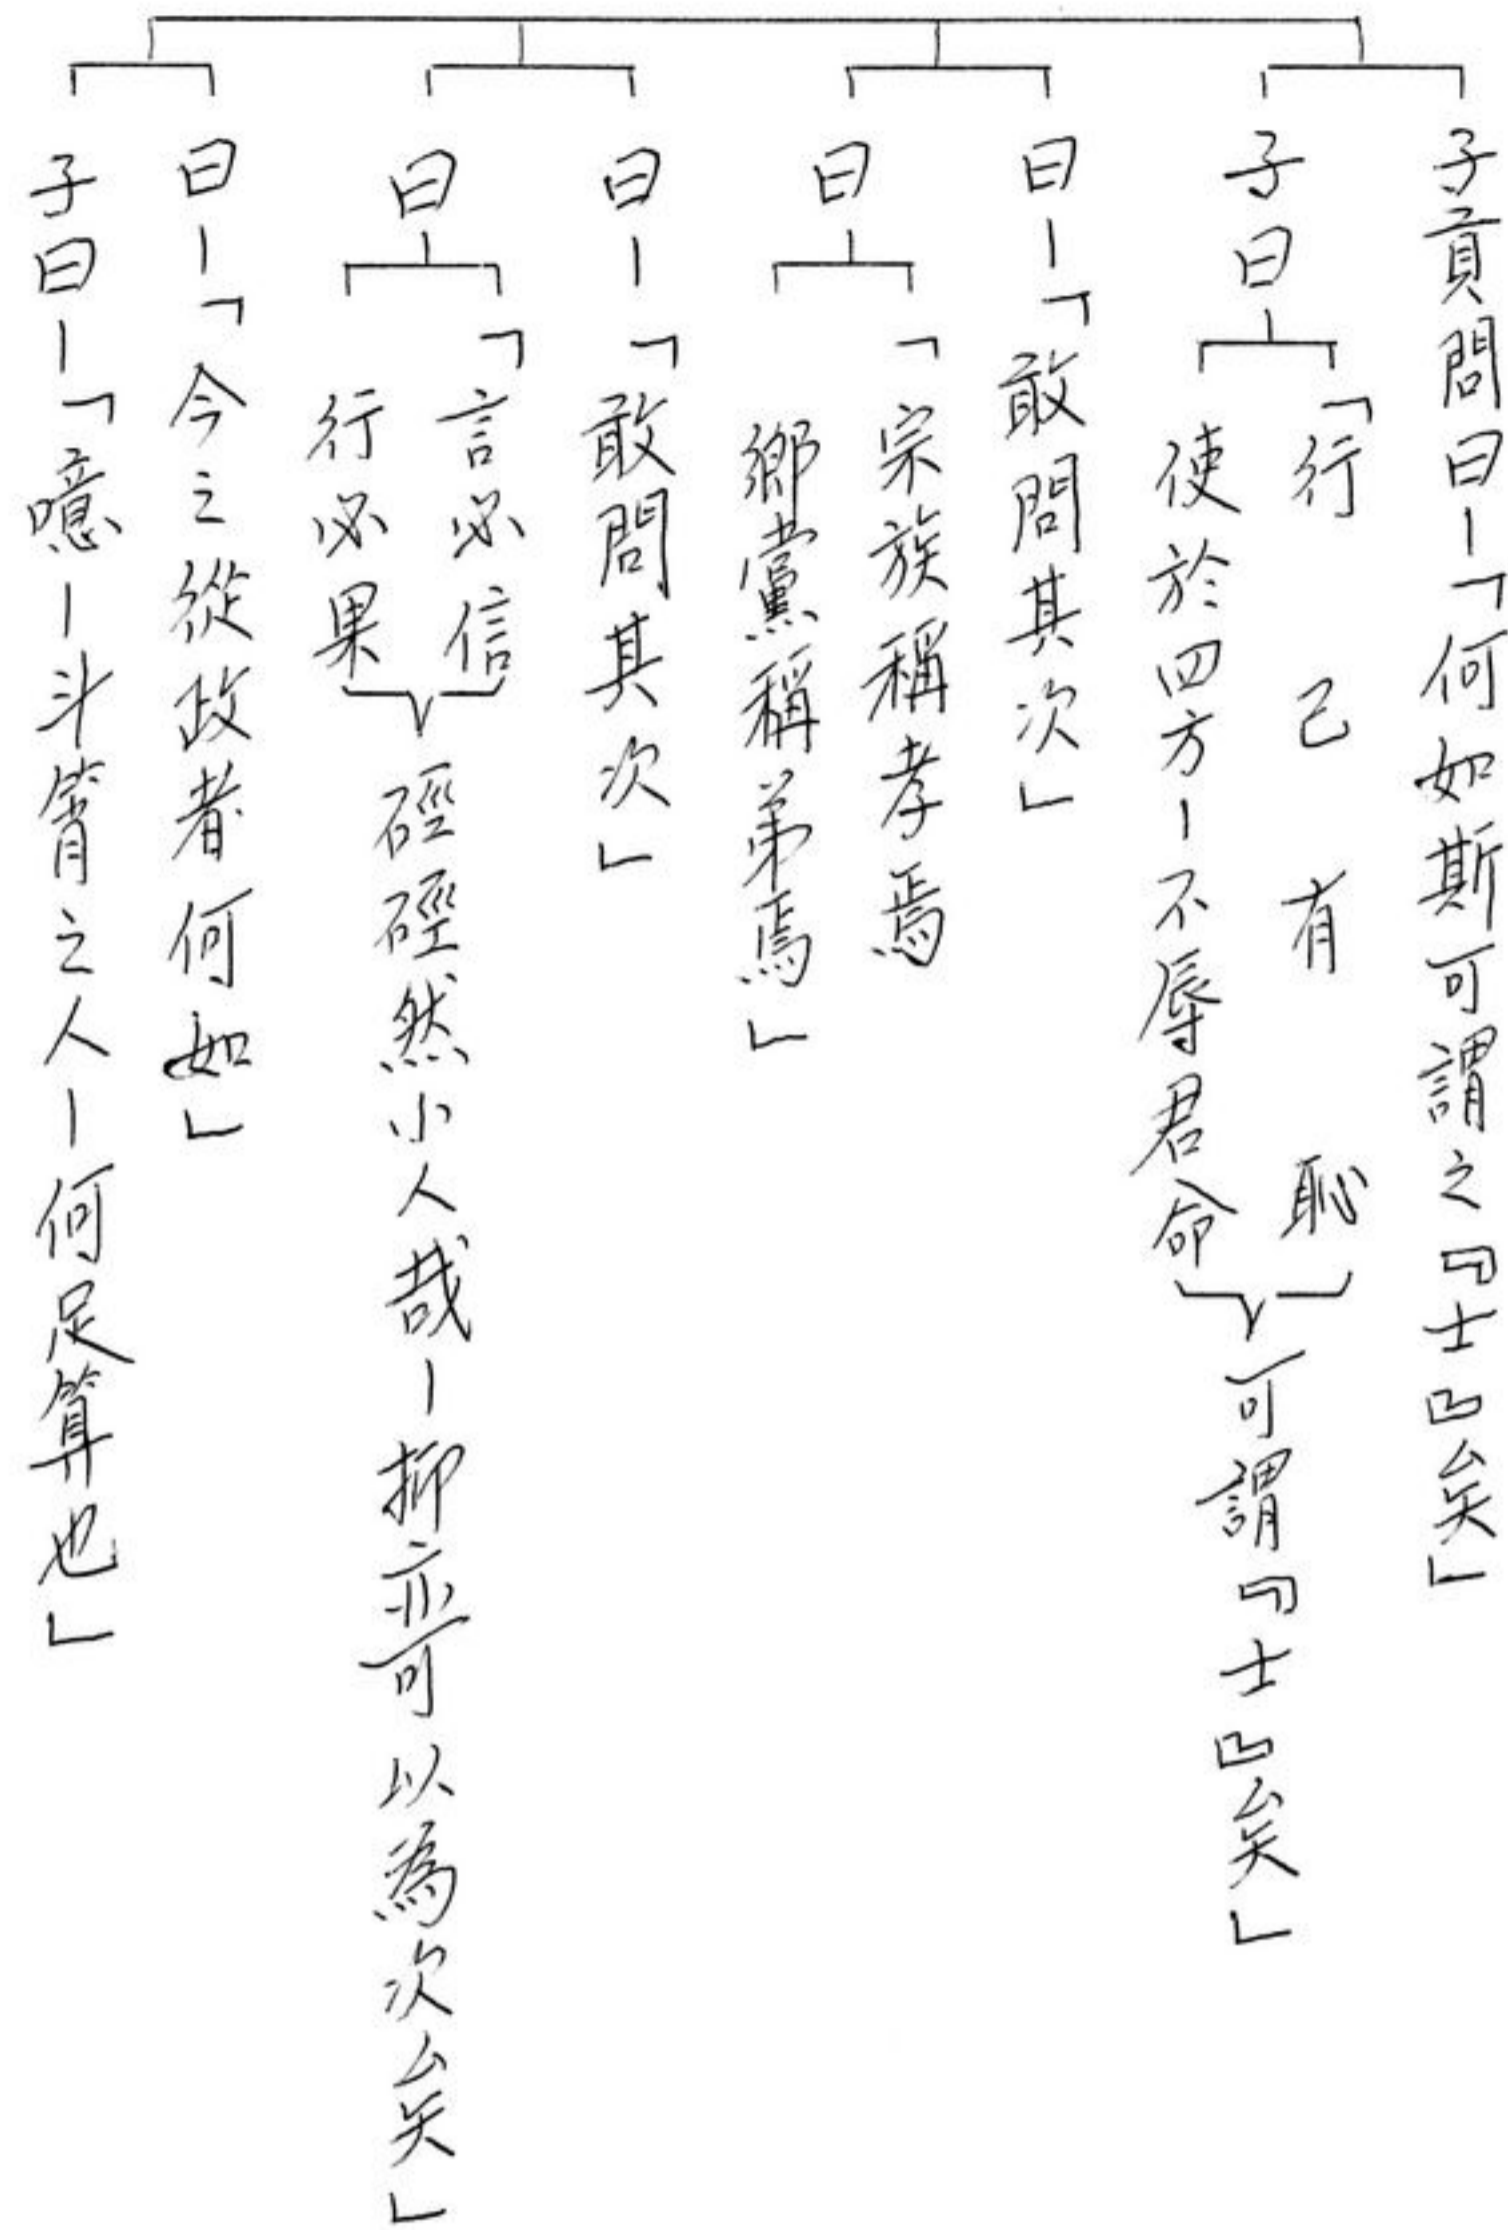 子貢問曰－「何如斯可謂之『士』矣」
子曰－
「行己有恥
使於四方－不辱君命
可謂『士』矣」
曰－「敢問其次」
曰－
「宗族稱孝焉
鄉黨稱弟焉」
曰－「敢問其次」
曰－
「言必信
行必果
硜硜然小人哉－抑亦可以為次矣」
曰－「今之從政者何如」
子曰－「噫－斗筲之人－何足算也」